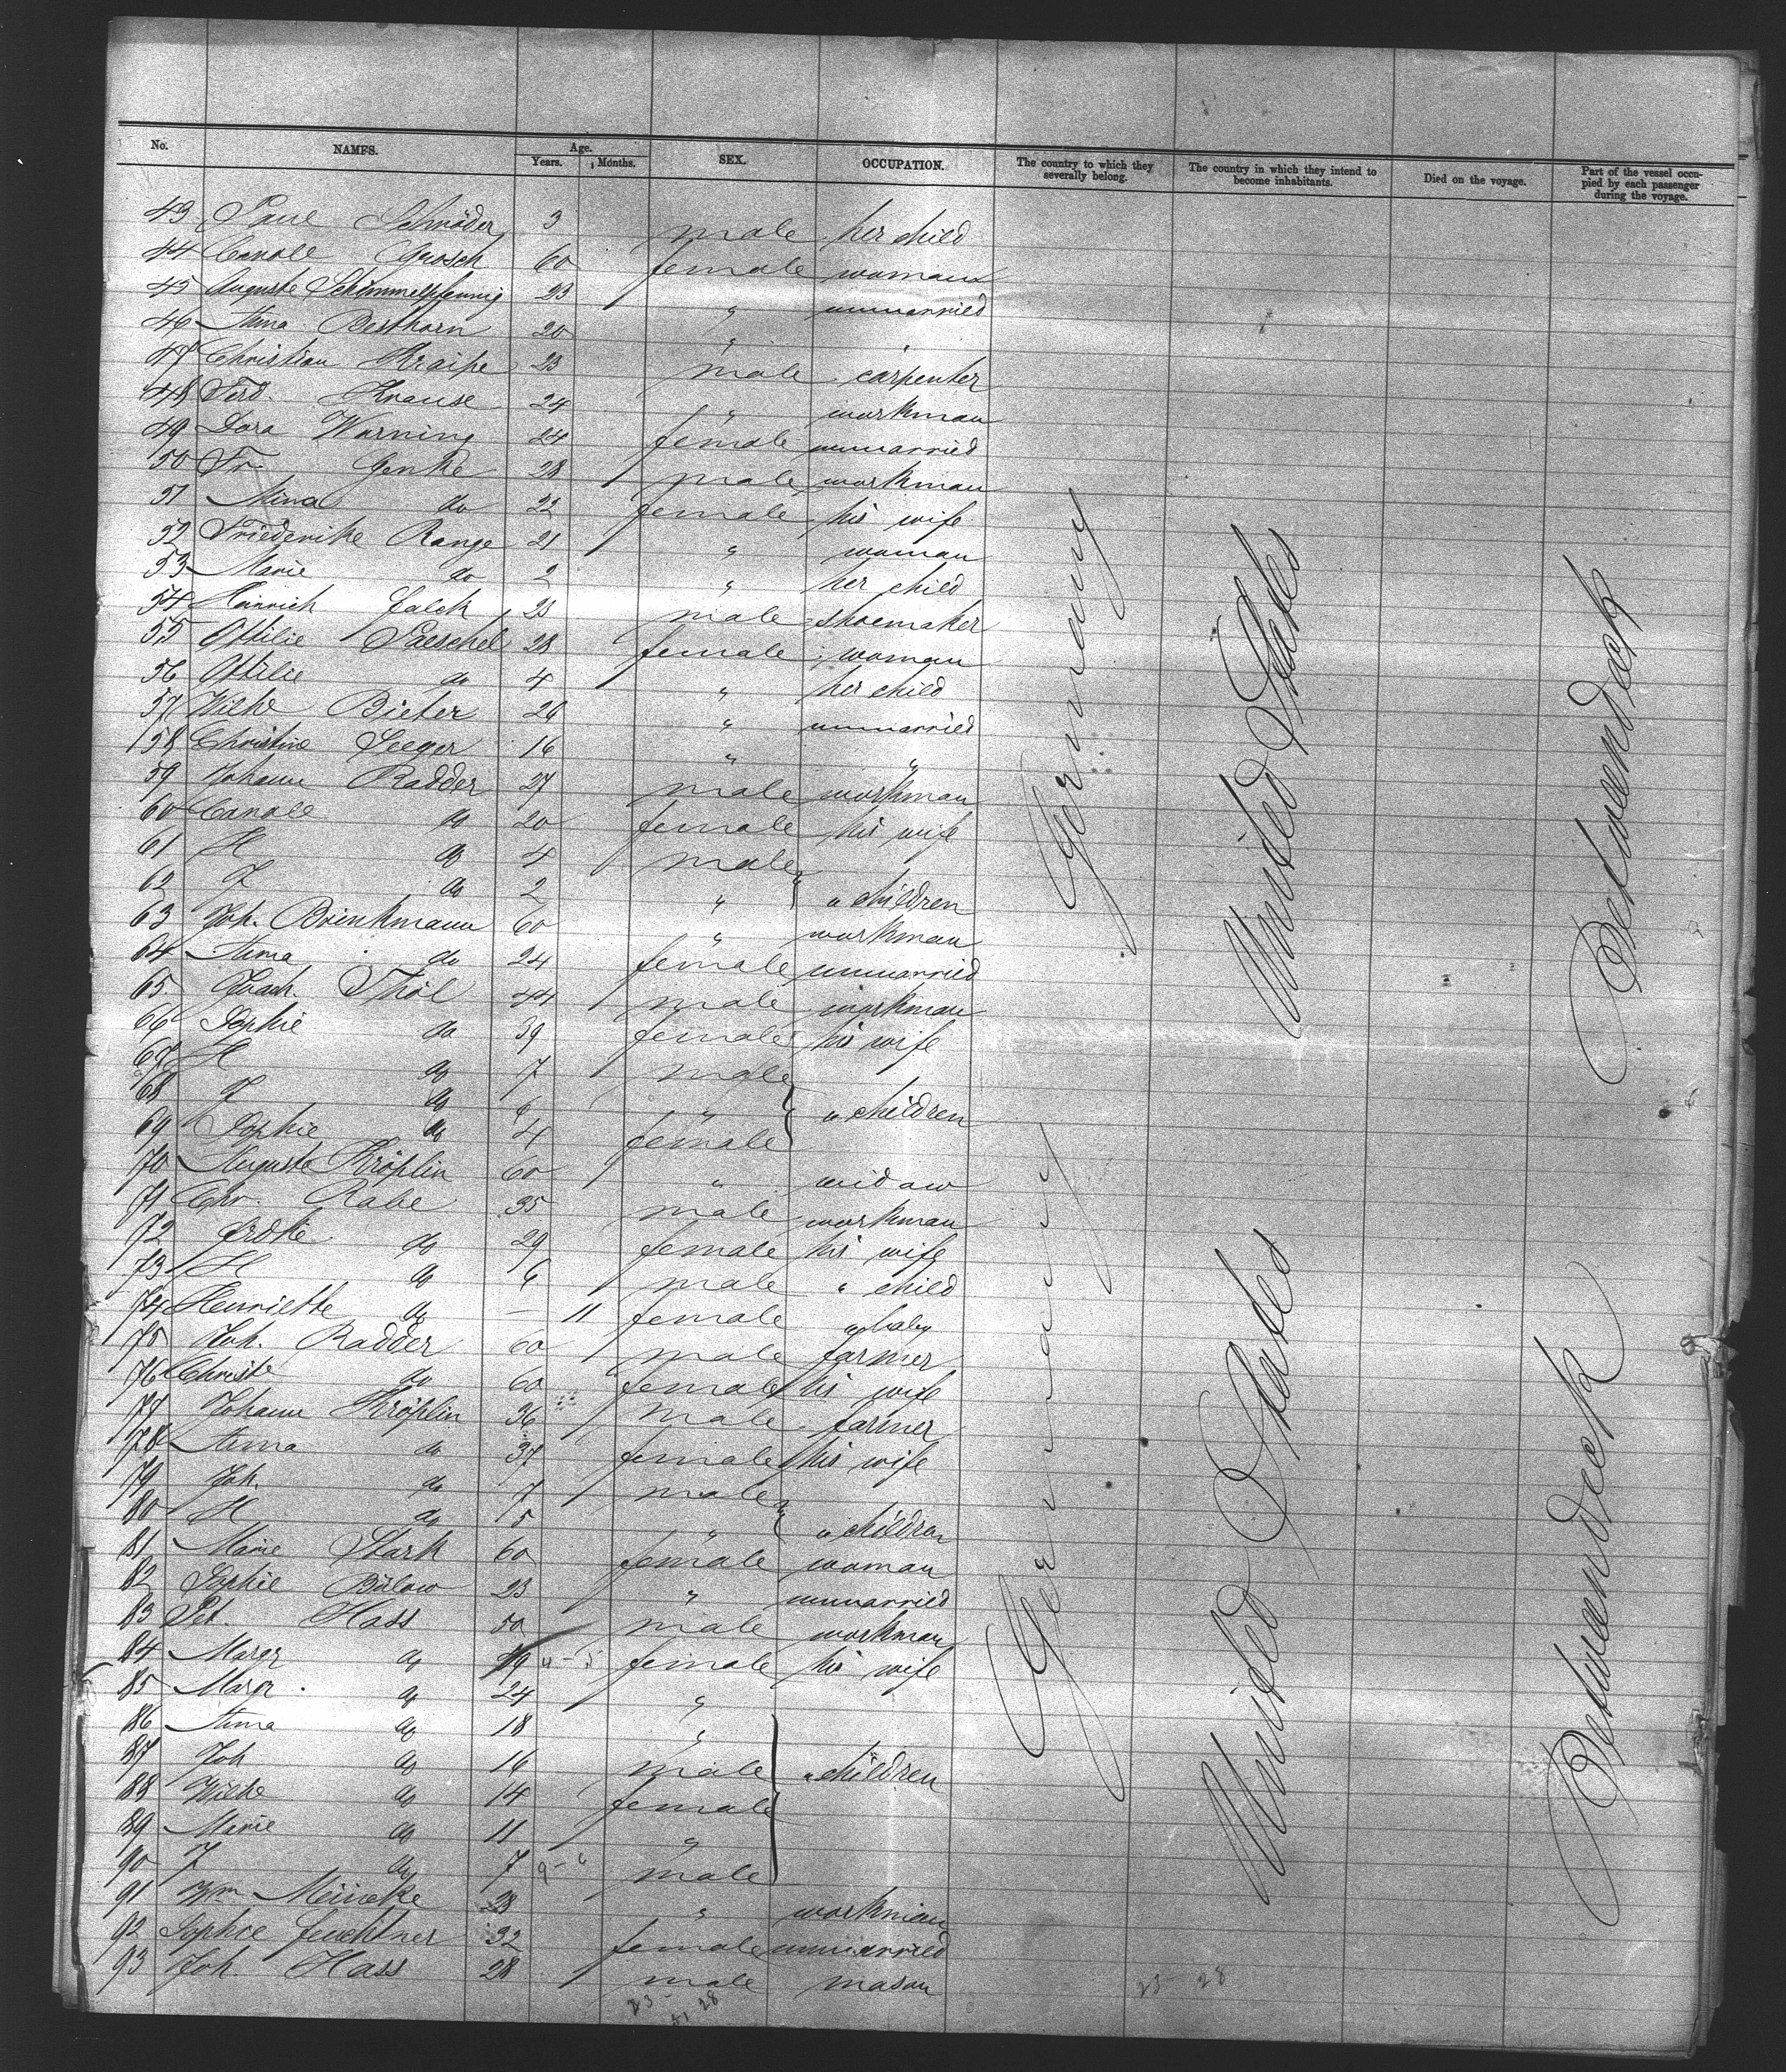 No. NAMES. Age. Years. Months. SEX. OCCUPATION. The country to which they severally belong. The country in which they intend to become inhabitants. Died on the voyage. Part of the vessel occupied by each passenger during the voyage.
43 Paul Schröder 3 male her child
44 Carole Grosch 60 female woman
45 Auguste Schimmelpfennig 23 " unmarried
46 Anna Besthorn 20 " "
47 Christian Kraipe 23 male carpenter
48 Ferd. Krause 24 " workman
49 Dora Warning 24 female unmarried
50 Fr. Genke 28 male workman
51 Mina do 22 female his wife
52 Friederike Range 21 " woman
53 Marie do 2 " her child
54 Heinrich Falck 23 male shoemaker
55 Ottilie Paeschel 28 female woman
56 Ottilie do 4 " her child
57 Wilhe Bieter 26 " unmarried
58 Christine Seeger 16 " "
59 Johann Radder 27 male workman
60 Carole do 20 female his wife
61 H do 4 male
62 J do 2 " " children
63 Joh. Brinkmann 60 " workman
64 Anna do 24 female unmarried
65 Joach. Thöl 44 male workman
66 Sophie do 39 female his wife
67 H do 7 male
68 J do 6 " " children
69 Sophie do 4 female
70 Auguste Kröplin 60 " widow
71 Chr. Rabe 35 male workman
72 Fredke do 29 female his wife
73 H do 6 male " child
74 Henriette do — 11 female " baby
75 Joh. Radder 60 male farmer
76 Christe do 60 female his wife
77 Johann Kröplin 36 male farmer
78 Anna do 37 female his wife
79 Joh. do 7 male
80 H do 5 " " children
81 Marie Stark 60 female woman
82 Sophie Bülow 23 " unmarried
83 Pet. Hass 50 male workman
84 Margr do 49 female his wife
85 Margr. do 24 "
86 Anna do 18 "
87 Joh do 16 male " children
88 Wilhe do 14 female
89 Marie do 11 "
90 J do 7 male
91 Wm Meincke 28 " workman
92 Sophie Feuchtner 32 female unmarried
93 Joh. Hass 28 male mason
Germany United States Betweendeck
Germany United States Betweendeck
23 28